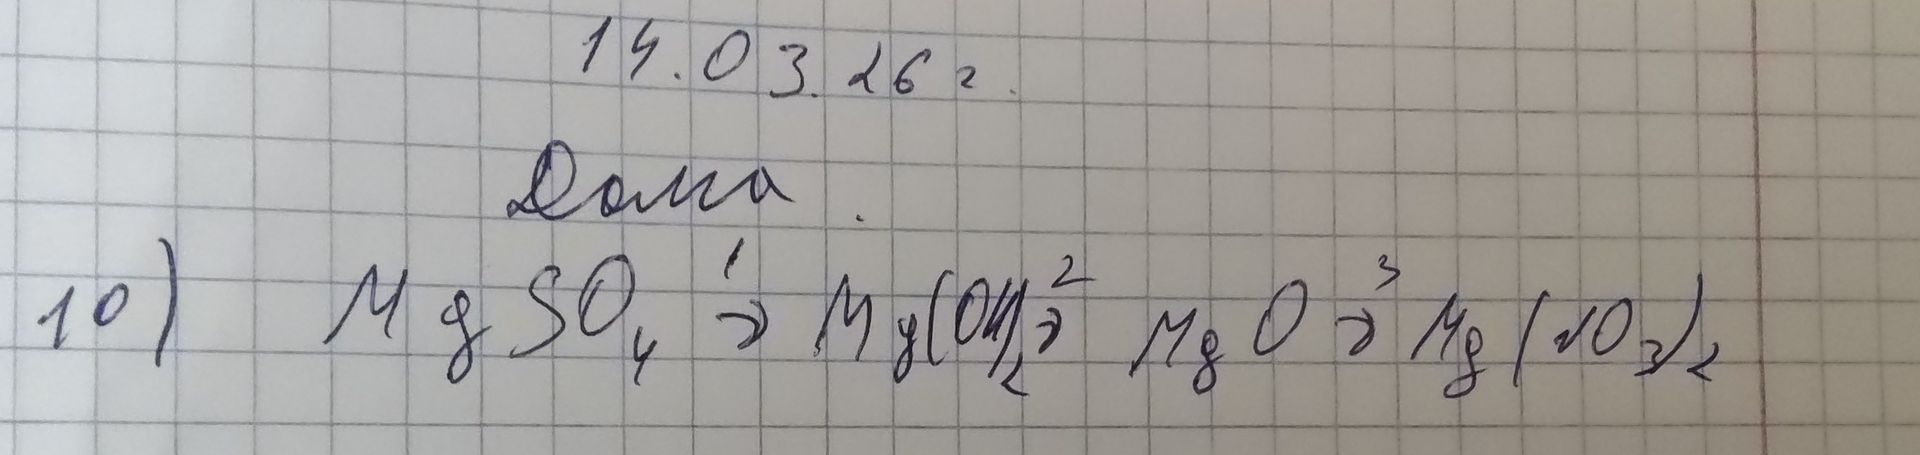 14.03.26 г.
Дома.
10) MgSO₄ →¹ Mg(OH)₂ →² MgO →³ Mg(NO₃)₂